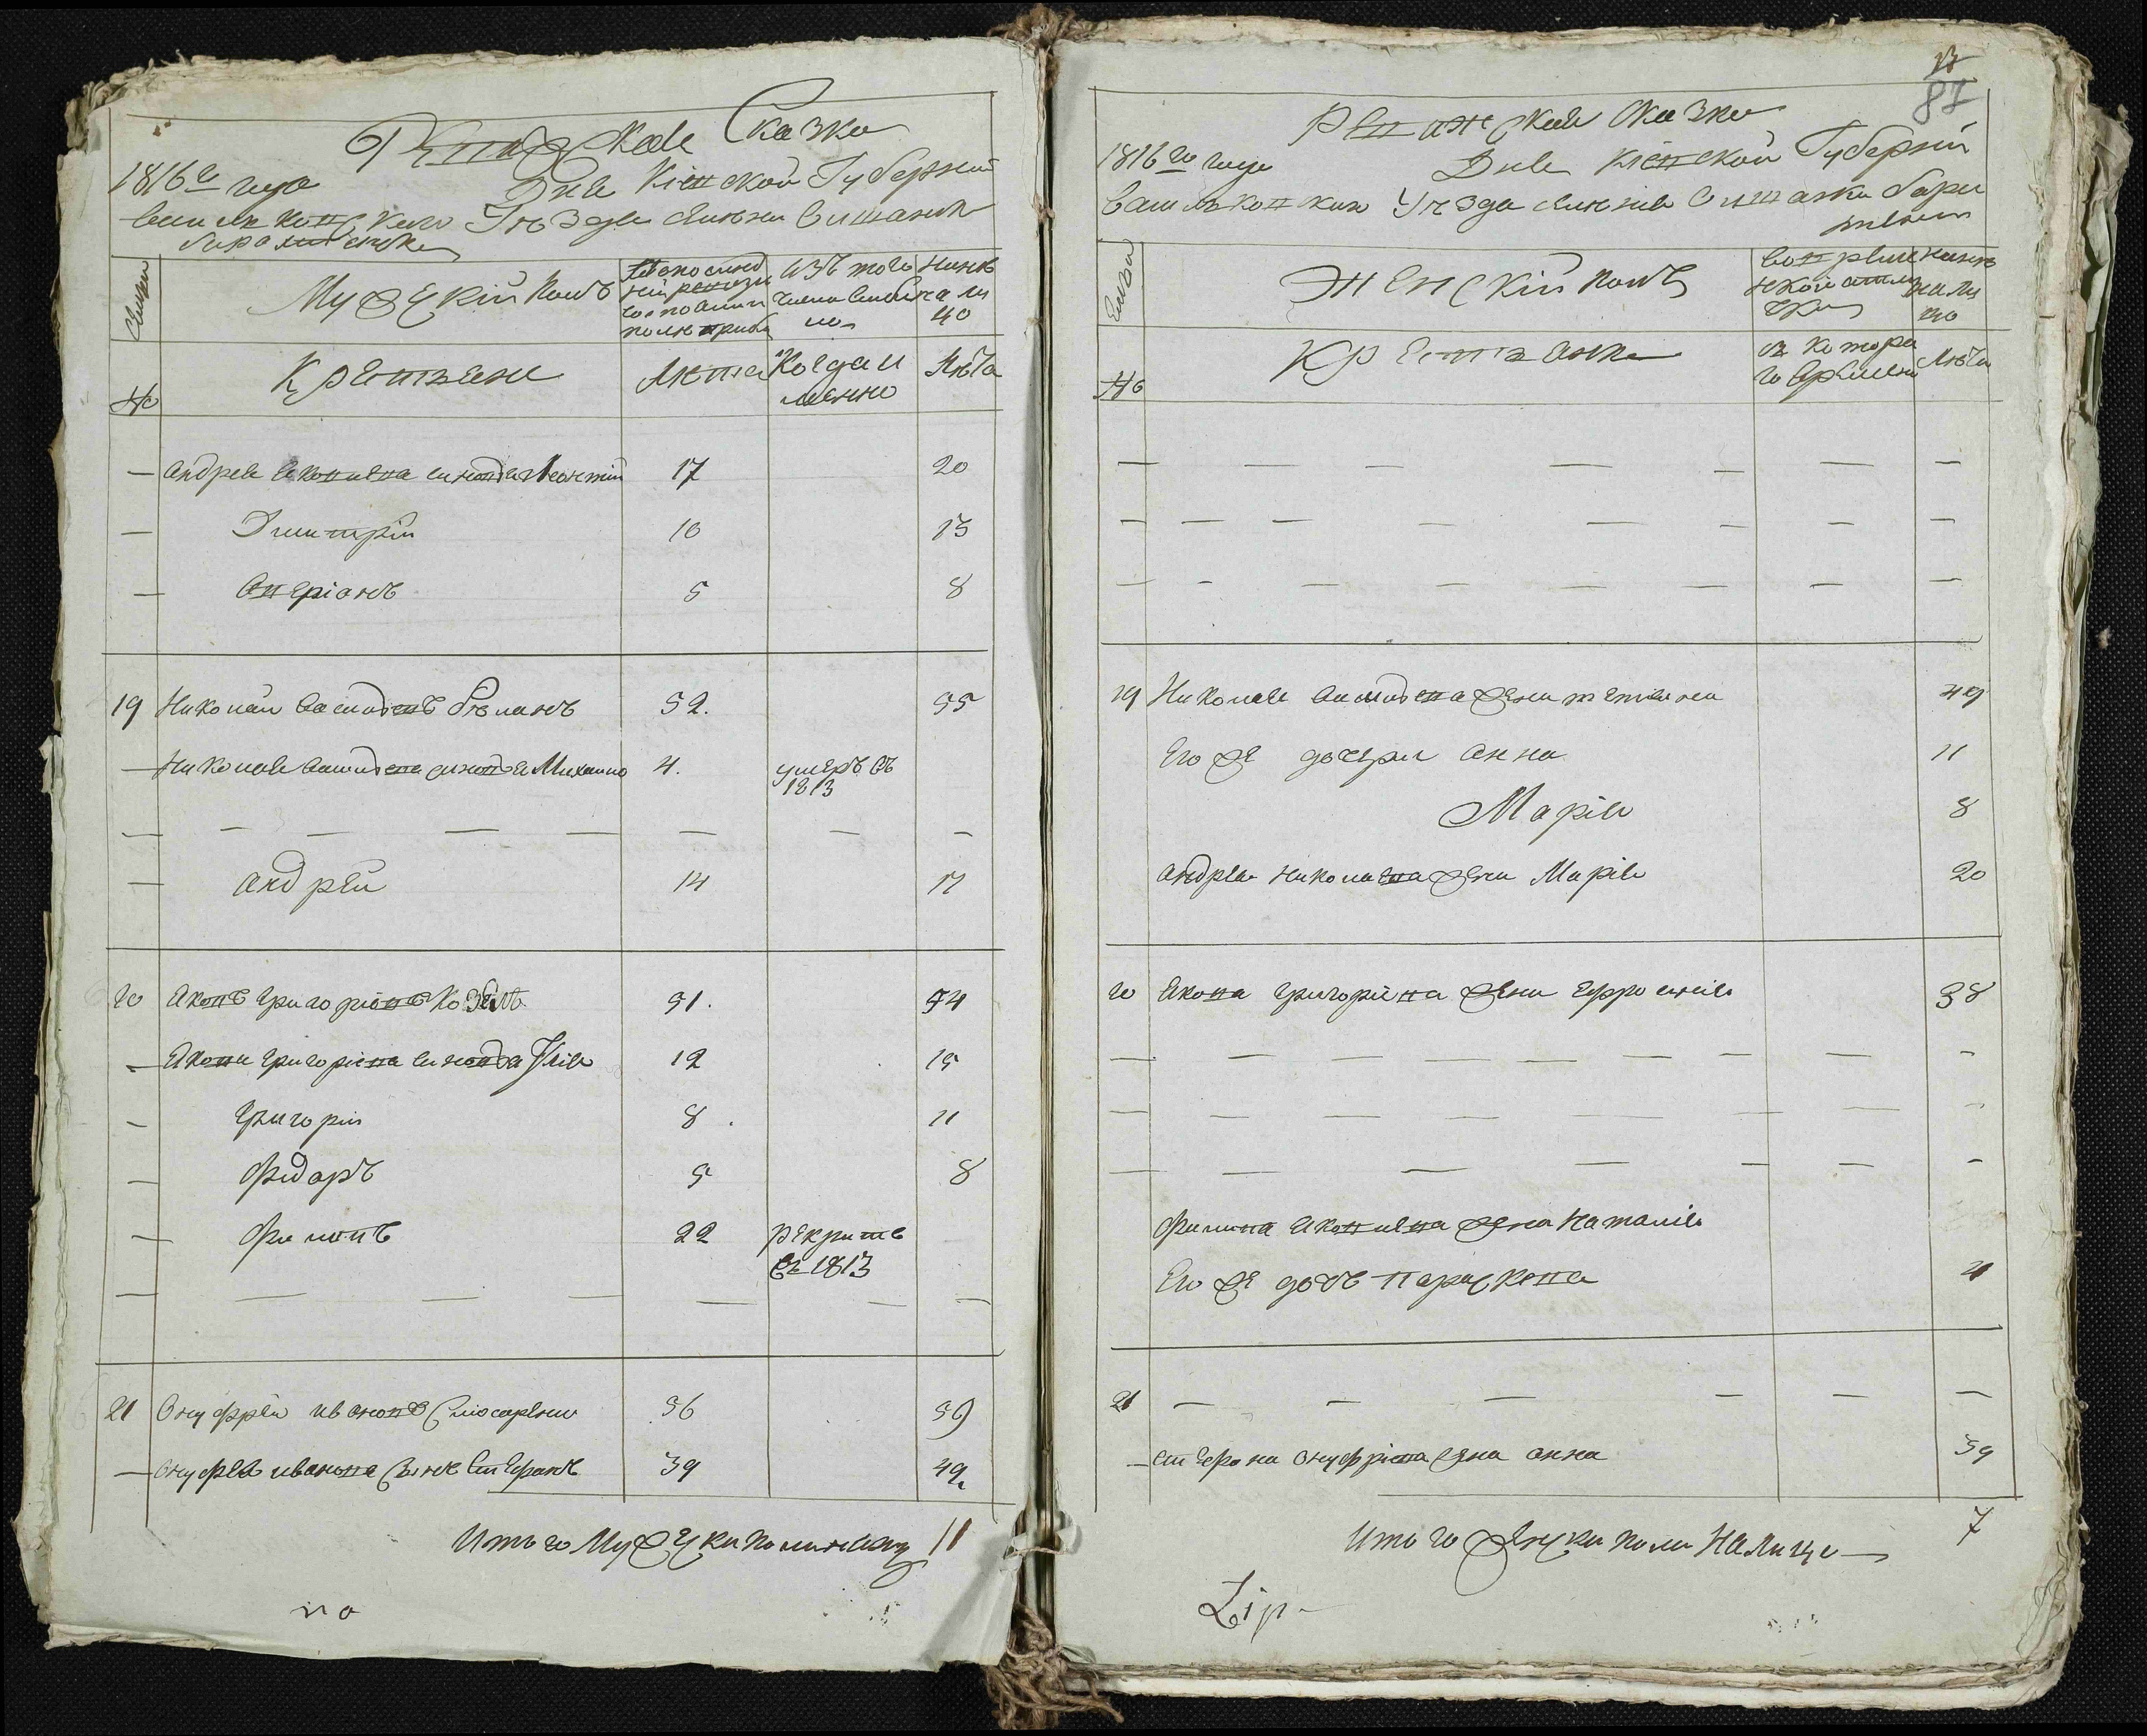 Ревизская Сказка
1816го года Дня Кіевской Губерніи
Васильковскаго Уѣзда
Семьи
Мужескій полъ
По последней ревизіи состояло и после прибыло
Изъ того числа выбыло
Нынѣ на лицо
№
Крестьяне
Лѣта
Когда именно
Лѣта
— Андрея Яковлева сыновья Леонтій 17 20
— Дмитрій 10 13
— Аверіанъ 5 8
19 Николай Васильевъ Бѣланъ 52. 55
— Николая Васильева сыновья Михайло 4. умеръ въ 1813
— — — — — — — —
— Андрей 14 17
20 Яковъ Григоріевъ Козелъ 51. 54
— Якова Григоріева сыновья Илія 12 15
— Григорій 8 11
— Федоръ 5 8
— Филипъ 22 рекрутъ въ 1813
— — — — — — — —
21 Онуфрей Ивановъ Слюсаренко 56 59
— Онуфрея Иванова сынъ Стефанъ 39 42
Итого Мужеска пола на лицо 11
no
87
Ревизская Сказка
1816го года Дня Кіевской Губерніи
Васильковскаго Уѣзда
Семьи
Женскій полъ
Во временной отлучке
Нынѣ на лицо
№
Крестьянки
Съ котораго времени
Лѣта
— — — — — — —
— — — — — — — —
— — — — — — — —
19 Николая Васильева жена Татіяна 49
Его же дочери Анна 11
Марія 8
Андрея Николаева жена Марія 20
20 Якова Григоріева жена Ефросинія 38
— — — — — — — — —
— — — — — — — — —
— — — — — — —
Филипа Яковлева жена Наталія
Его же дочь Парасковія 4
21 — — — — — —
— Стефана Онуфріева жена Анна 39
Итого Женска пола на лицо — 7
Lip-